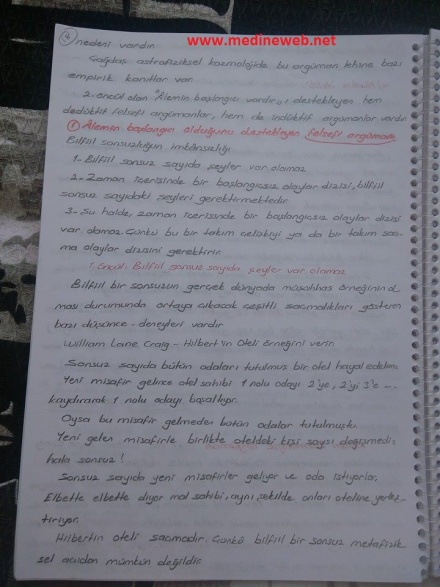 4
www.medineweb.net
nedeni vardır.
Çağdaş astrofiziksel kozmolojide bu argüman lehine bazı
empirik kanıtlar var.
2. öncül olan "Âlemin başlangıcı vardır"ı destekleyen hem
dedüktif felsefi argümanlar, hem de indüktif argümanlar vardır.
1 Âlemin başlangıcı olduğunu destekleyen felsefi argüman:
Bilfiil sonsuzluğun imkânsızlığı
1- Bilfiil sonsuz sayıda şeyler var olamaz.
2- Zaman içerisinde bir başlangıçsız olaylar dizisi, bilfiil
sonsuz sayıdaki şeyleri gerektirmektedir.
3- Şu halde, zaman içerisinde bir başlangıçsız olaylar dizisi
var olamaz. Çünkü bu bir takım çelişkiyi ya da bir takım saç-
ma olaylar dizisini gerektirir.
1. öncül: Bilfiil sonsuz sayıda şeyler var olamaz
Bilfiil bir sonsuzun gerçek dünyada müşahhas örneğinin ol
ması durumunda ortaya çıkacak çeşitli saçmalıkları gösteren
bazı düşünce-deneyleri vardır.
William Lane Craig - Hilbert'in Oteli örneğini verir.
Sonsuz sayıda bütün odaları tutulmuş bir otel hayal edelim.
Yeni misafir gelince otel sahibi 1 nolu odayı 2'ye, 2'yi 3'e ...
kaydırarak 1 nolu odayı boşaltıyor.
Oysa bu misafir gelmeden bütün odalar tutulmuştu.
Yeni gelen misafirle birlikte oteldeki kişi sayısı değişmedi:
hala sonsuz!
Sonsuz sayıda yeni misafirler geliyor ve oda istiyorlar.
Elbette elbette diyor mal sahibi, aynı şekilde onları oteline yerleş-
tiriyor.
Hilbertin oteli saçmadır. Çünkü bilfiil bir sonsuz metafizik
sel açıdan mümkün değildir.